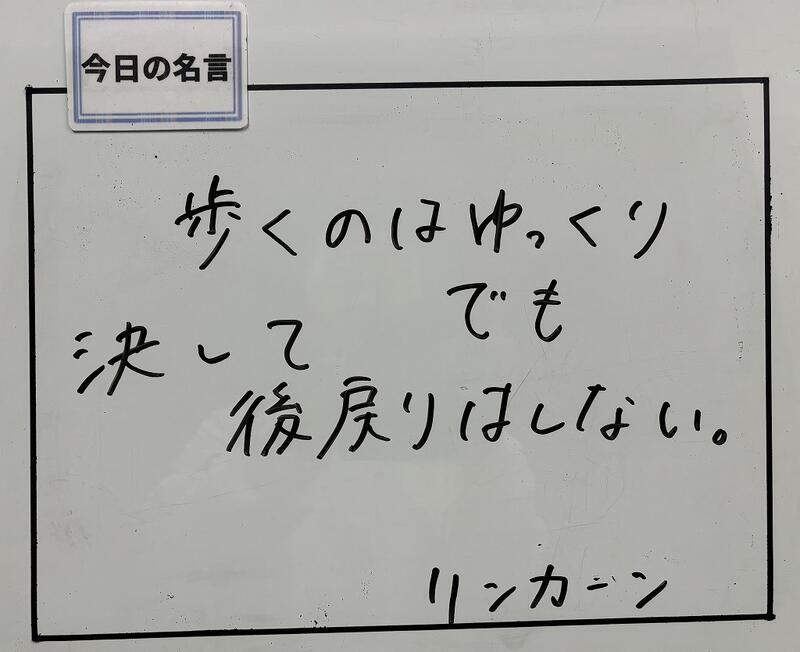 今日の名言
歩くのはゆっくり
でも
決して
後戻りはしない。
リンカーン